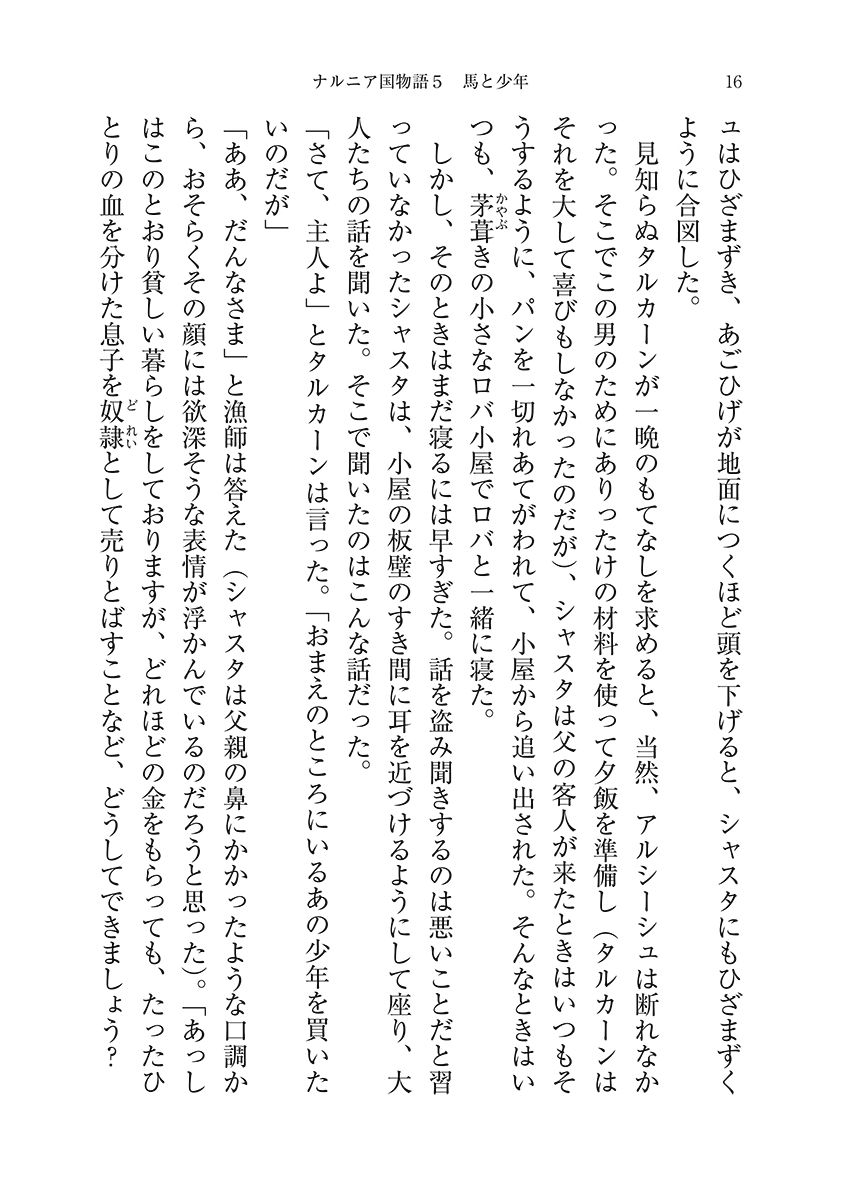 ナルニア国物語5　馬と少年
16
ュはひざまずき、あごひげが地面につくほど頭を下げると、シャスタにもひざまずく
ように合図した。
　見知らぬタルカーンが一晩のもてなしを求めると、当然、アルシーシュは断れなか
った。そこでこの男のためにありったけの材料を使って夕飯を準備し（タルカーンは
それを大して喜びもしなかったのだが）、シャスタは父の客人が来たときはいつもそ
うするように、パンを一切れあてがわれて、小屋から追い出された。そんなときはい
つも、茅葺きの小さなロバ小屋でロバと一緒に寝た。
かやぶ
　しかし、そのときはまだ寝るには早すぎた。話を盗み聞きするのは悪いことだと習
っていなかったシャスタは、小屋の板壁のすき間に耳を近づけるようにして座り、大
人たちの話を聞いた。そこで聞いたのはこんな話だった。
「さて、主人よ」とタルカーンは言った。「おまえのところにいるあの少年を買いた
いのだが」
「ああ、だんなさま」と漁師は答えた（シャスタは父親の鼻にかかったような口調か
ら、おそらくその顔には欲深そうな表情が浮かんでいるのだろうと思った）。「あっし
はこのとおり貧しい暮らしをしておりますが、どれほどの金をもらっても、たったひ
とりの血を分けた息子を奴隷として売りとばすことなど、どうしてできましょう？
どれい